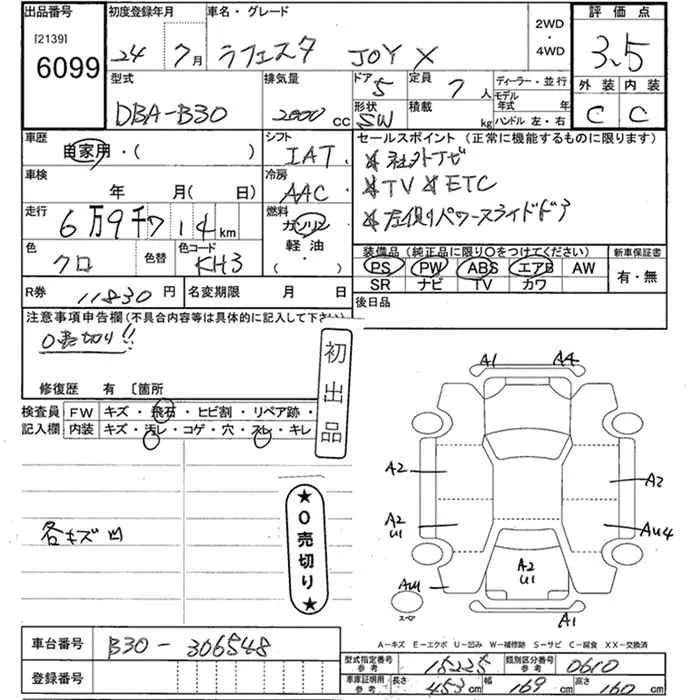 出品番号
[2139]
6099
初度登録年月
24 7月
車名・グレード
ラフェスタ JOY X
2WD
・
4WD
評価点
3.5
外装 内装
C C
型式
DBA-B30
排気量
2000 CC
ドア 5
形状 SW
定員 7 人
積載 kg
ディーラー・並行
モデル年式 年
ハンドル 左・右
車歴
自家用・( )
シフト
IAT
車検
年 月(日)
冷房
AAC
走行
6万9千714km
燃料
ガソリン
軽油
・( )
色
クロ
色替
色コード
KH3
セールスポイント (正常に機能するものに限ります)
社外ナビ
TV ETC
左側パワースライドドア
装備品 (純正品に限り〇をつけてください)
PS PW ABS エアB AW
SR ナビ TV カワ
新車保証書
有・無
R券 11830 円
名変期限 月 日
後日品
注意事項申告欄 (不具合内容等は具体的に記入して下さい)
0売切り!!
修復歴 有 〔箇所
初出品
検査員記入欄
FW キズ・飛石・ヒビ割・リペア跡・
内装 キズ・汚レ・コゲ・穴・スレ・キレ
各キズ凹
★0売切り★
A1 A4
A2
A2
A2
U1
AU4
A2
U1
A1
スペア
A-キズ E-エクボ U-凹み W-補修跡 S-サビ C-腐食 XX-交換済
車台番号 B30-306548
登録番号
型式指定番号 参考 15225
類別区分番号 参考 0610
車庫証明用 参考 長さ 453 cm 幅 169 cm 高さ 160 cm